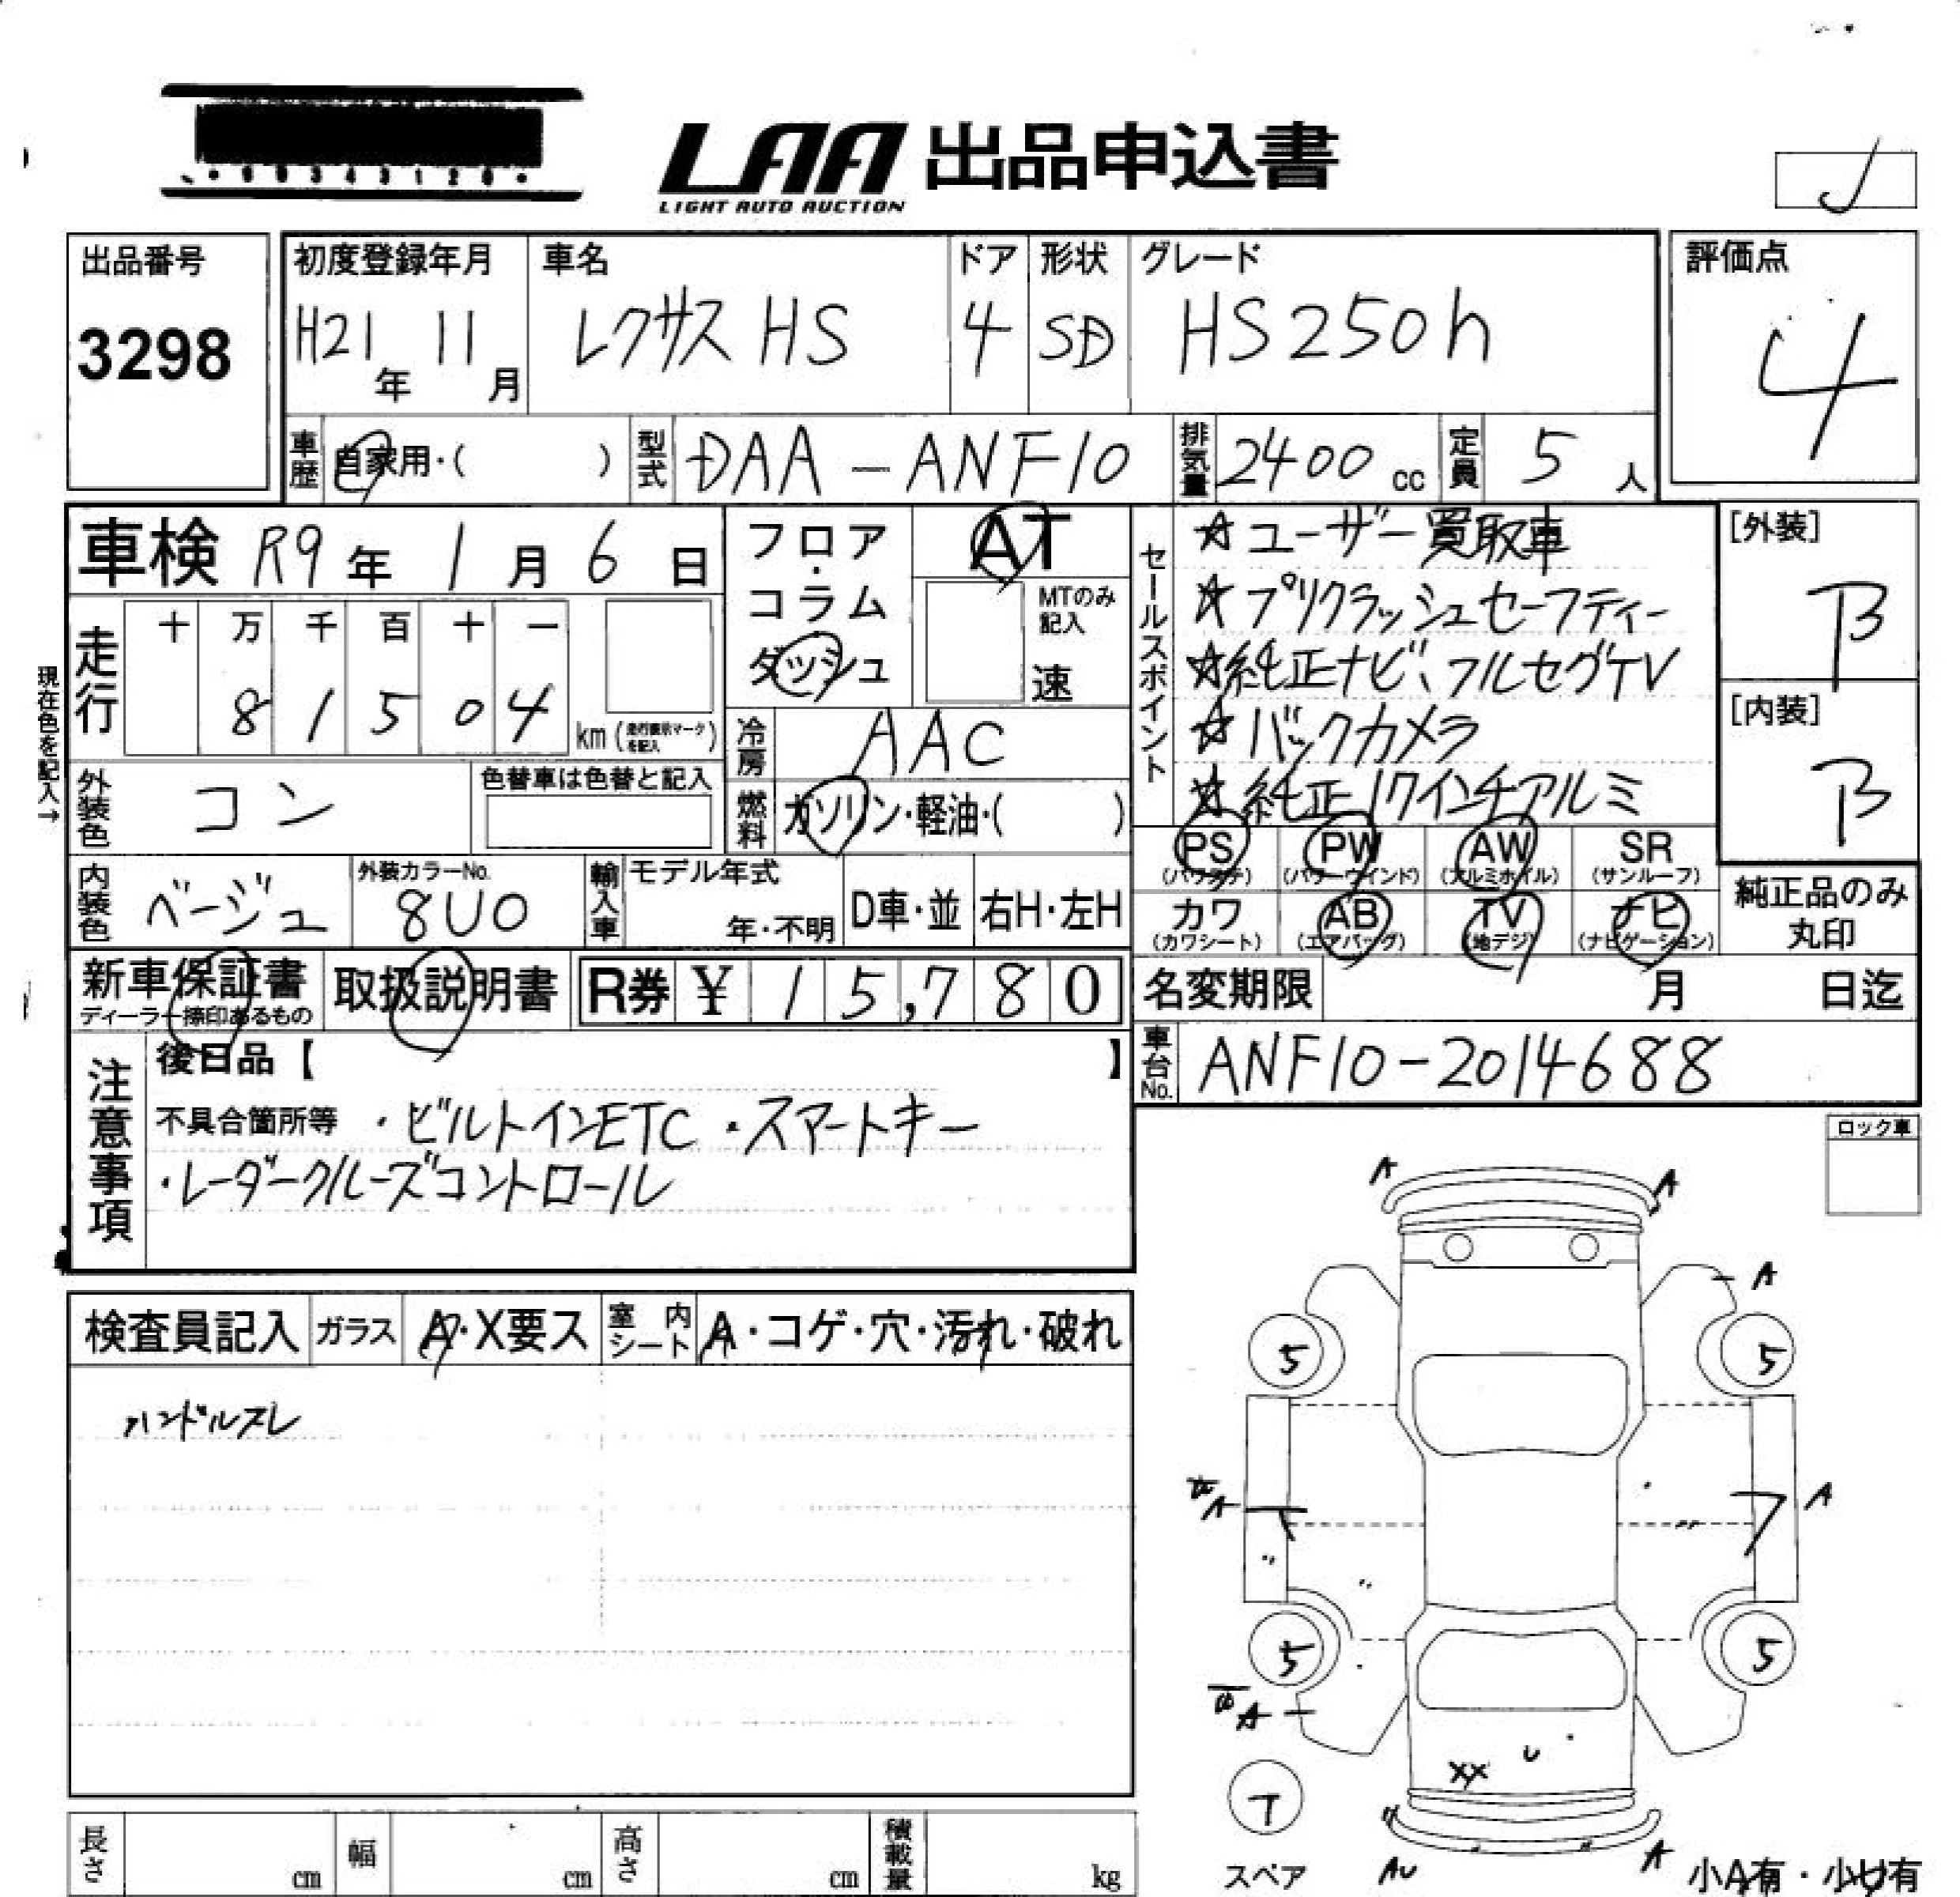 00343120
LAA 出品申込書
LIGHT AUTO AUCTION
出品番号
3298
初度登録年月
H21年 11月
車名
レクサス HS
ドア
4
形状
SD
グレード
HS250h
評価点
4
車歴 自家用・( )
型式 DAA-ANF10
排気量 2400 cc
定員 5 人
車検 R9年 1月 6日
フロア・コラム ダッシュ
AT
MTのみ記入
速
セールスポイント
☆ユーザー買取車
☆プリクラッシュセーフティー
☆純正ナビ、フルセグTV
☆バックカメラ
☆純正17インチアルミ
[外装]
B
[内装]
B
走行
十 万 千 百 十 一
8 1 5 0 4
km (走行表示マークを記入)
現在色を記入→
冷房 AAC
外装色 コン
色替車は色替と記入
燃料 ガソリン・軽油・( )
PS (パワステ) PW (パワーウインド) AW (アルミホイル) SR (サンルーフ)
カワ (カワシート) AB (エアバッグ) TV (地デジ) ナビ (ナビゲーション)
純正品のみ丸印
内装色 ベージュ
外装カラーNo.
8U0
輸入車 モデル年式
年・不明
D車・並 右H・左H
新車保証書
ディーラー捺印あるもの
取扱説明書
R券 ¥ 15,780
名変期限 月 日迄
車台No. ANF10-2014688
注意事項
後日品【 】
不具合箇所等 ・ビルトインETC ・スマートキー
・レーダークルーズコントロール
ロック車
検査員記入 ガラス A・X要ス 室内シート A・コゲ・穴・汚れ・破れ
ハンドルスレ
A A
A
5 5
A A
5 5
A
XX U
T
スペア
AU A
小A有・小U有
長さ cm 幅 cm 高さ cm 積載量 kg